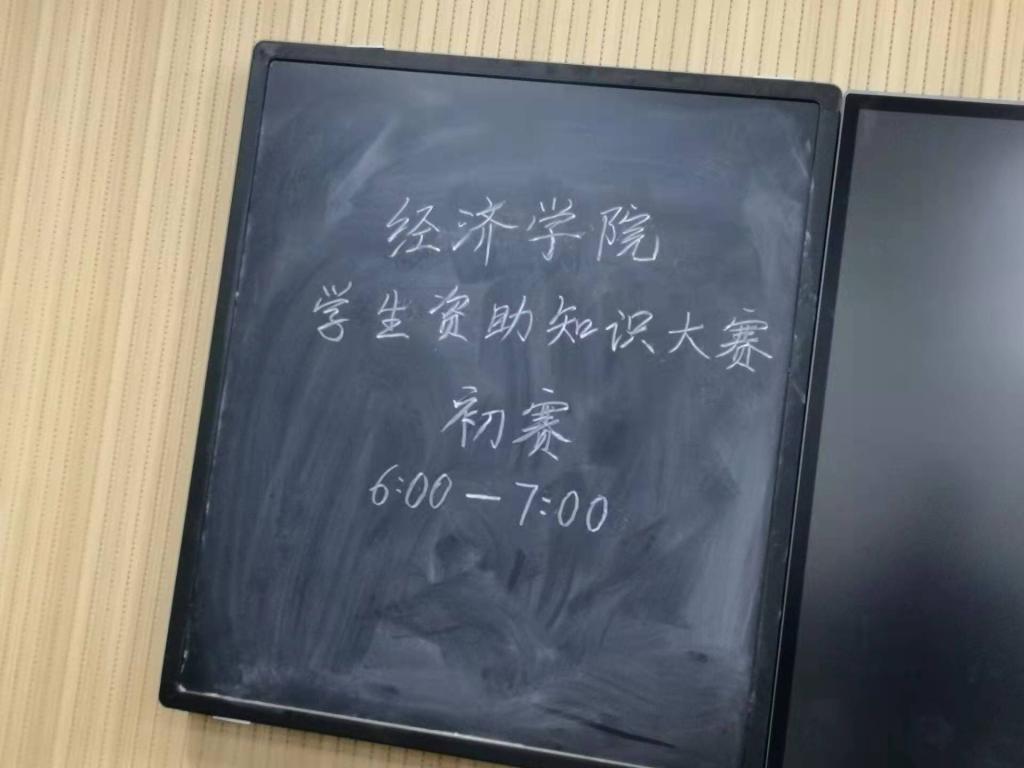 经济学院
学生资助知识大赛
初赛
6:00—7:00